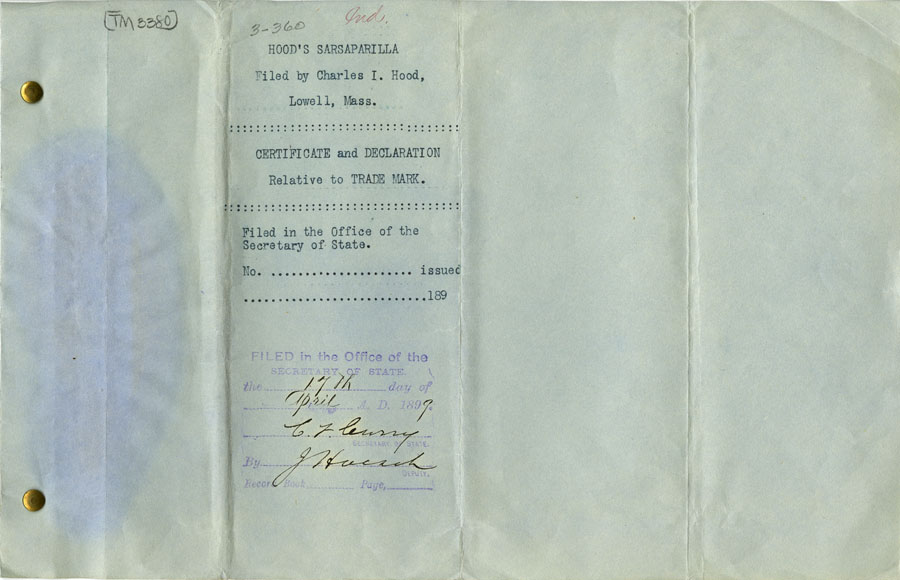 TM 3380
3-360
Ind.
HOOD'S SARSAPARILLA
Filed by Charles I. Hood,
Lowell, Mass.
CERTIFICATE and DECLARATION
Relative to TRADE MARK.
Filed in the Office of the
Secretary of State.
No. ..................... issued
...........................189
FILED in the Office of the
SECRETARY OF STATE.
the 17th day of
April A. D. 1899.
C. F. Curry
SECRETARY OF STATE.
By J Hoesch
DEPUTY.
Record Book Page,